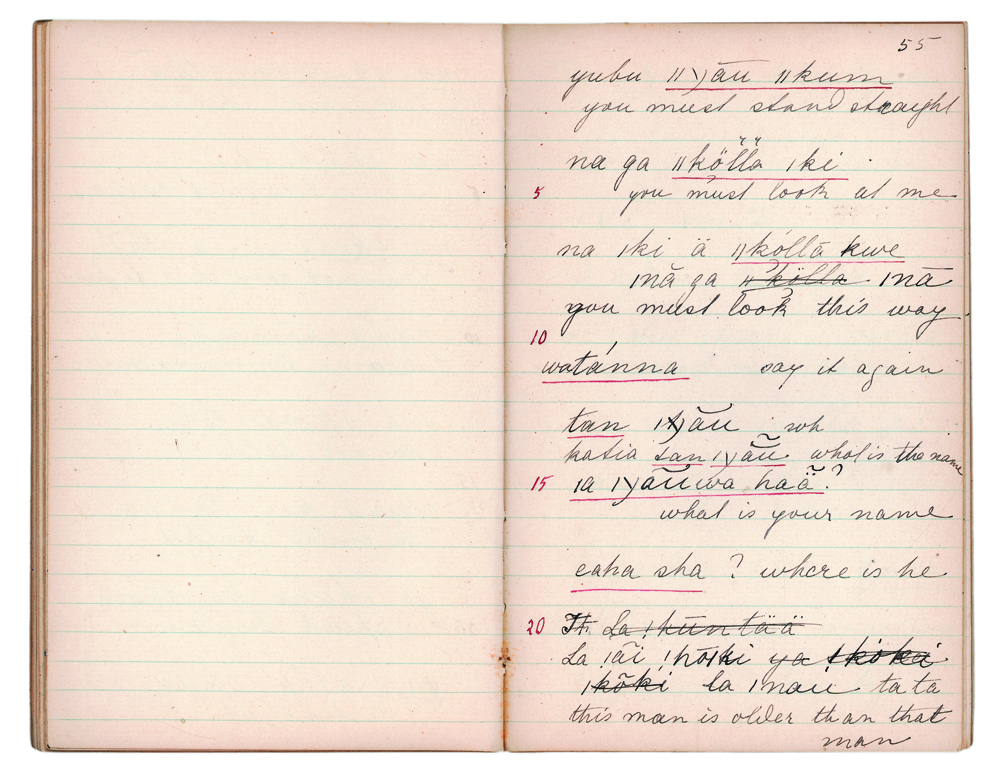 55
yubu ǁɣāū ǁkum
you must stand straight
na ga ǁkölla ǀki
5 you must look at me
na ǀki ä ǁkóllā kwe
ǀnā ga ǁkölla ǀnā
you must look this way
10
watánna say it again
tan ǀɣāu wh
katia tan ǀɣāū what is the name
15 ǀa ǀɣāūwa haä?
what is your name
eaha sha? where is he
20 It. La ǃkūntää
La ǃāi ǃkōǀki ya ǃkōkai
ǀkōki la ǀnau ta ta
this man is older than that
man